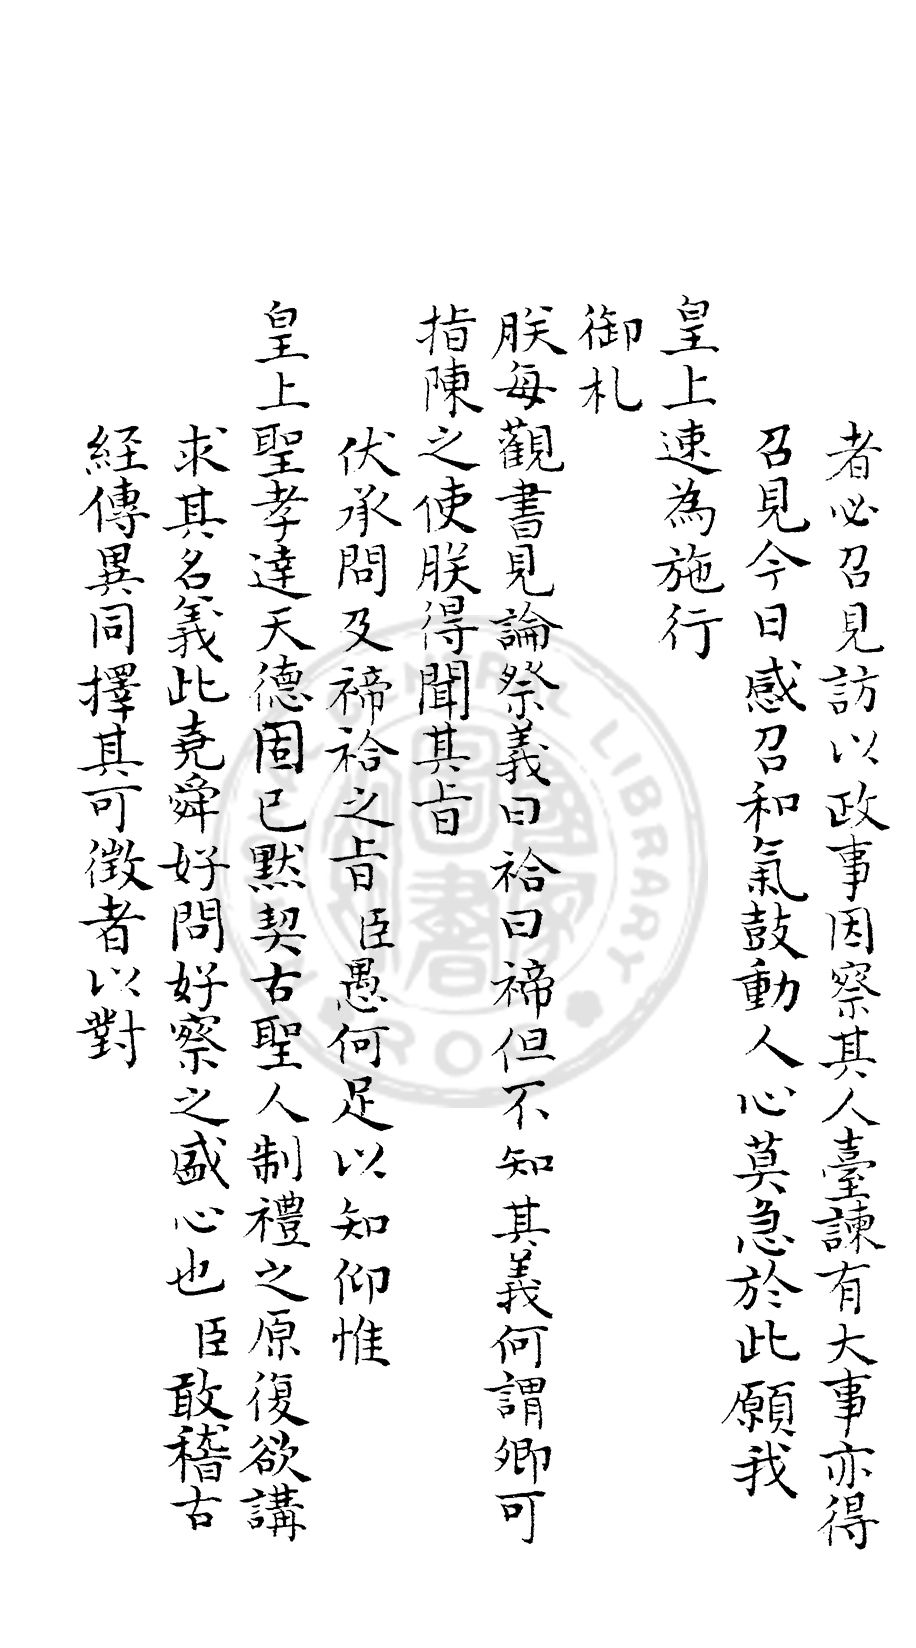 者必召見訪以政事因察其人臺諫有大事亦得
召見今日感召和氣鼓動人心莫急於此願我
皇上速為施行
御札
朕每觀書見論祭義曰祫曰禘但不知其義何謂卿可
指陳之使朕得聞其旨
伏承問及禘祫之旨臣愚何足以知仰惟
皇上聖孝達天德固已默契古聖人制禮之原復欲講
求其名義此堯舜好問好察之盛心也臣敢稽古
経傳異同擇其可徴者以對